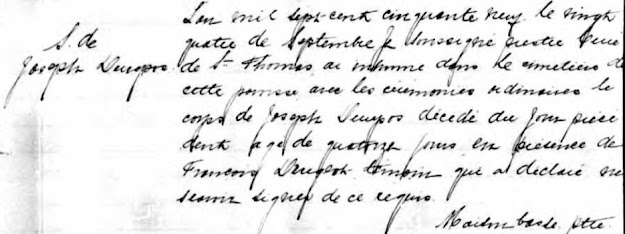 S. de
Joseph Durepos
L'an mil sept-cent cinquante neuf le vingt
quatre de Septembre Je soussigné prestre curé
de St Thomas ai inhumé dans le cimetière de
cette paroisse avec les cérémonies ordinaires le
corps de Joseph Durepos décédé du jour précé
dent agé de quatorze jours en présence de
François témoin qui a déclaré ne
scavoir signer de ce requis.
Maisonbasse ptre